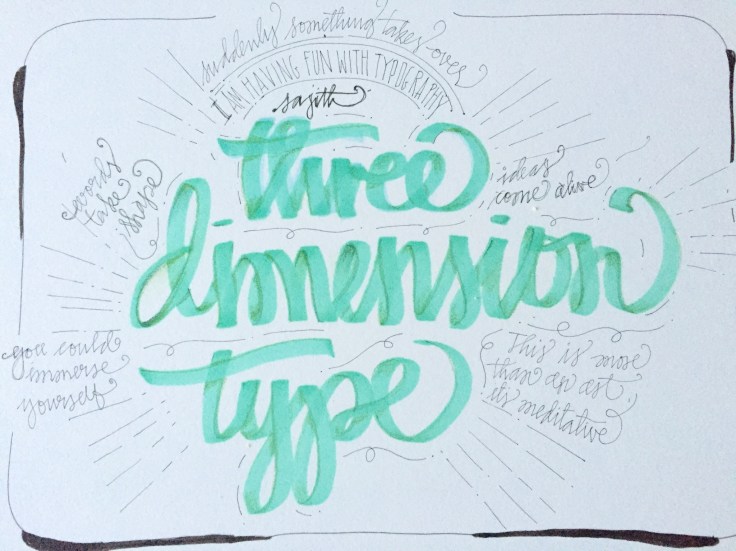 suddenly something takes over
I AM HAVING FUN WITH TYPOGRAPHY
sajith
three
dimension
type
words
take
shape
ideas
come alive
you could
immerse
yourself
This is more
than an art
its meditative